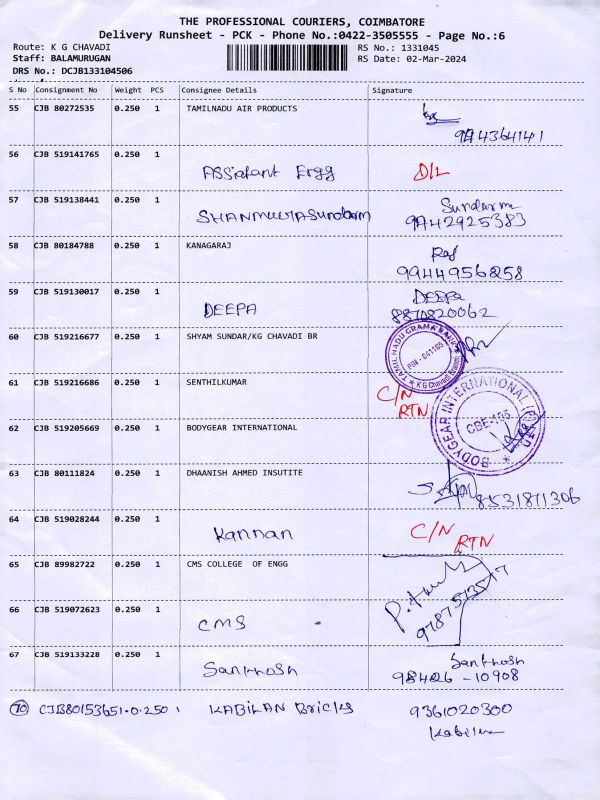 THE PROFESSIONAL COURIERS, COIMBATORE
Delivery Runsheet - PCK - Phone No.:0422-3505555 - Page No.:6
Route: K G CHAVADI RS No.: 1331045
Staff: BALAMURUGAN RS Date: 02-Mar-2024
DRS No.: DCJB133104506
S No Consignment No Weight PCS Consignee Details Signature
55 CJB 80272535 0.250 1 TAMILNADU AIR PRODUCTS
56 CJB 519141765 0.250 1 Assistant Engg D/L
57 CJB 519138441 0.250 1 Sundarm
9942925383
58 CJB 80184788 0.250 1 KANAGARAJ Raj
9944956258
59 CJB 519130017 0.250 1 DEEPA Deepa
8870820062
60 CJB 519216677 0.250 1 SHYAM SUNDAR/KG CHAVADI BR
TAMIL NADU GRAMA BANK
PIN - 641105
K G Chavadi Branch
61 CJB 519216686 0.250 1 SENTHILKUMAR C/N
RTN
62 CJB 519205669 0.250 1 BODYGEAR INTERNATIONAL
BODYGEAR INTERNATIONAL (P) LTD
CBE-105
63 CJB 80111824 0.250 1 DHAANISH AHMED INSUTITE
8531871306
64 CJB 519028244 0.250 1 Kannan C/N
RTN
65 CJB 89982722 0.250 1 CMS COLLEGE OF ENGG
66 CJB 519072623 0.250 1 CMS
67 CJB 519133228 0.250 1 Santhosh Santhosh
98426-10908
70 CJB80153651 0.250 1 KABILAN Bricks 9361020300
Kabilan